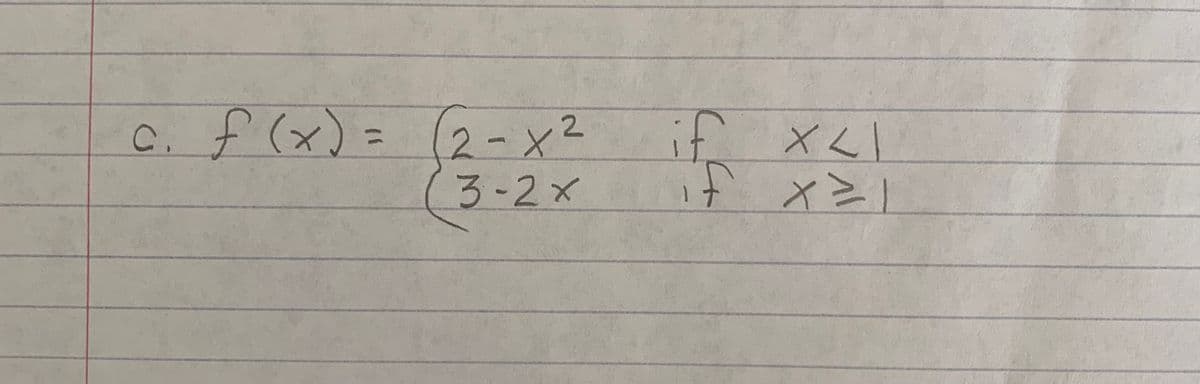 c. f(x) = { 2 - x² if x < 1
3 - 2x if x ≥ 1